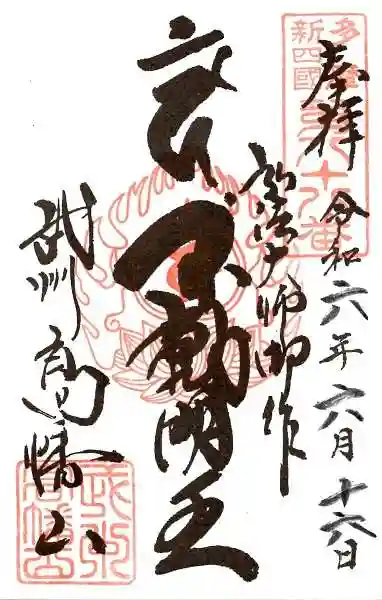 奉拝
令和六年六月十六日
多摩新四國
第八十八番
弘法大師御作
不動明王
武州高幡山